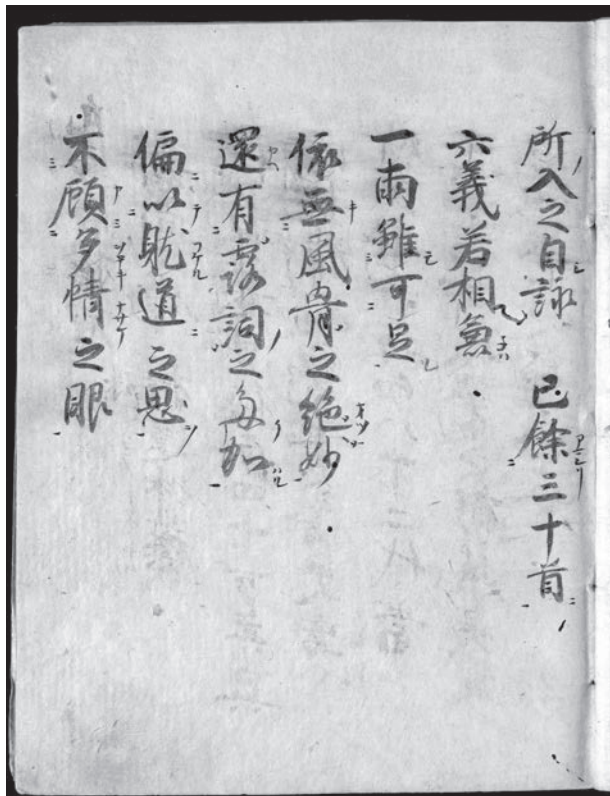 所入之自詠　已餘三十首
六義若相兼
一両雖可足
依無風骨之絶妙
還有露詞之多加
偏以耽道之思
不顧多情之眼